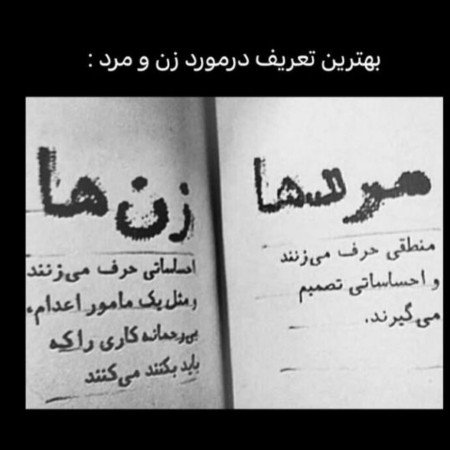 بهترین تعریف درمورد زن و مرد :
مردها
منطقی حرف می‌زنند
و احساساتی تصمیم
می‌گیرند.
زن‌ها
احساساتی حرف می‌زنند
و مثل یک مامور اعدام،
بی‌رحمانه کاری را که
باید بکنند می‌کنند